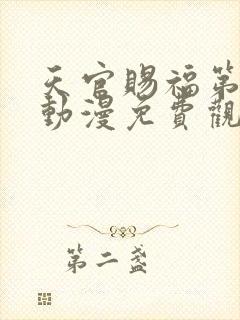 天官賜福第
動漫免費觀
第二盞